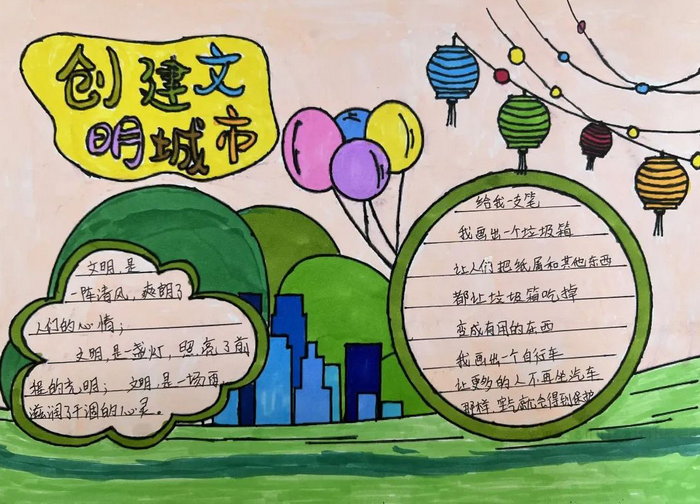 创建文
明城市
文明,是
一阵清风,爽朗了
人们的心情;
文明,是一盏灯,照亮了前
程的光明; 文明,是一场雨,
滋润了干涸的心灵。
给我一支笔
我画出一个垃圾箱
让人们把纸屑和其他东西
都让垃圾箱吃掉
变成有用的东西
我画出一个自行车
让更多的人不再坐汽车
那样空气就会得到保护